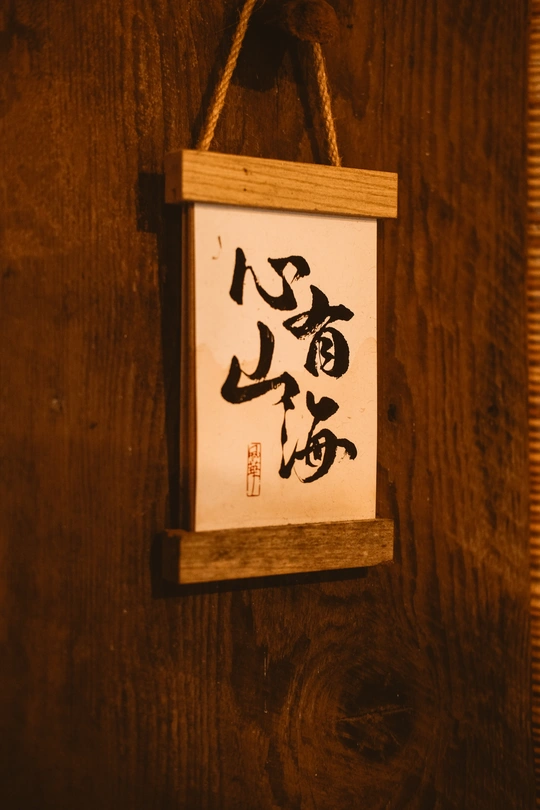 心有
山海